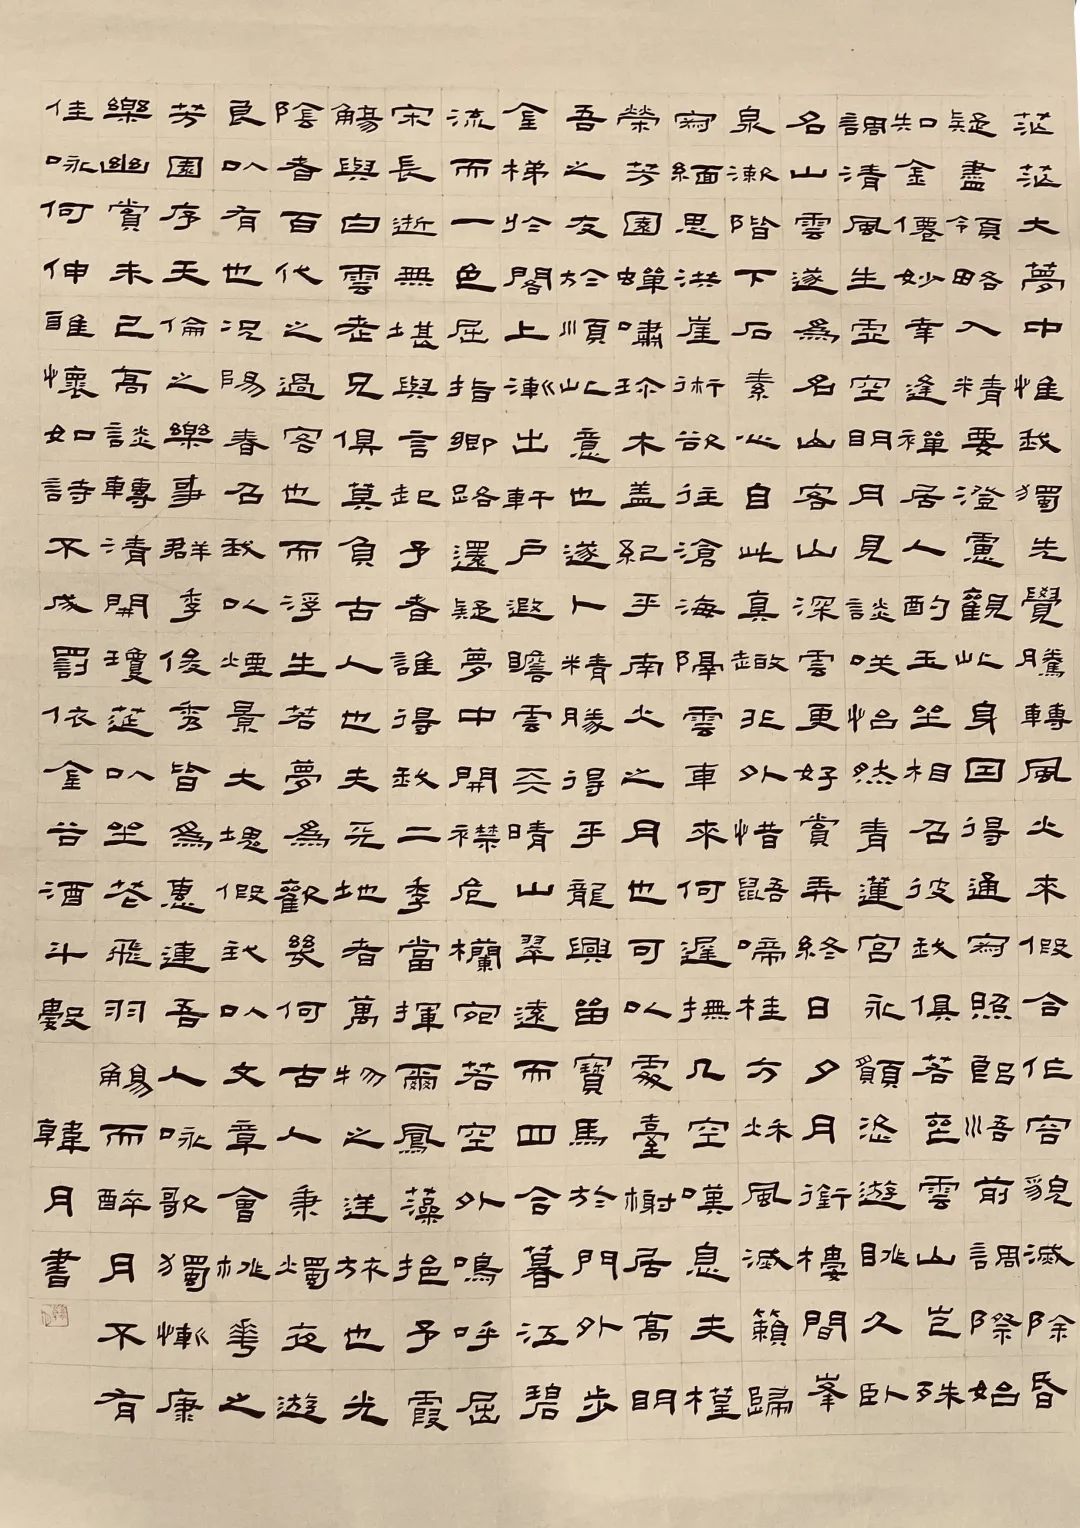 茫茫大夢中惟我獨先覺騰轉風火來假合作容貌滅除昏
疑盡領略入精要澄慮觀此身因得通寂照朗悟前調際始
知金僊妙幸逢禪居人酌玉坐相召彼我俱若喪雲山豈殊
調清風生虛空明月見談咲怡然青蓮宮永願恣遊眺久臥
名山雲遂為名山客山深雲更好賞弄終日夕月銜樓間峯
泉漱階下石素心自此真趣非外惜鼯啼桂方秋風滅籟歸
寂緬思洪崖術欲往滄海隔雲車來何遲撫几空嘆息夫槿
榮芳園蟬嘯珍木蓋紀乎南火之月也可以處臺榭居高明
吾之友於順此意也遂卜精勝得乎龍興留寶馬於門外步
金梯於閣上漸出軒戶遐瞻雲天晴山翠遠而四合暮江碧
流而一色屈指鄉路還疑夢中開襟危欄宛若空外鳴呼屈
宋長逝無堪與言起予者誰得我二季當揮爾鳳藻挹予霞
觴與白雲老兄俱莫負古人也夫天地者萬物之逆旅也光
陰者百代之過客也而浮生若夢為歡幾何古人秉燭夜遊
良以有也況陽春召我以煙景大塊假我以文章會桃華之
芳園序天倫之樂事群季俊秀皆為惠連吾人咏歌獨慚康
樂幽賞未已高談轉清開瓊筵以坐花飛羽觴而醉月不有
佳咏何伸雅懷如詩不成罰依金谷酒斗數 韓月書